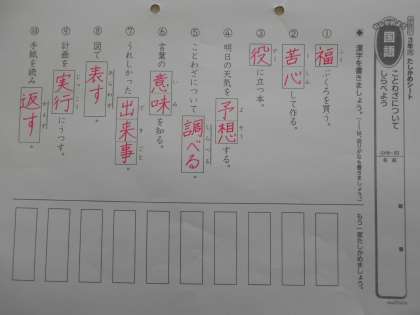 国語
3年
たしかめシート
ことわざについて
しらべよう
◆ 漢字を書きましょう。
もう一度たしかめましょう。
① 福ぶくろを買う。
② 苦心して作る。
③ 役に立つ本。
④ 明日の天気を予想する。
⑤ ことわざについて調べる。
⑥ 言葉の意味を知る。
⑦ うれしかった出来事。
⑧ 図で表す。
⑨ 計画を実行にうつす。
⑩ 手紙を読み返す。